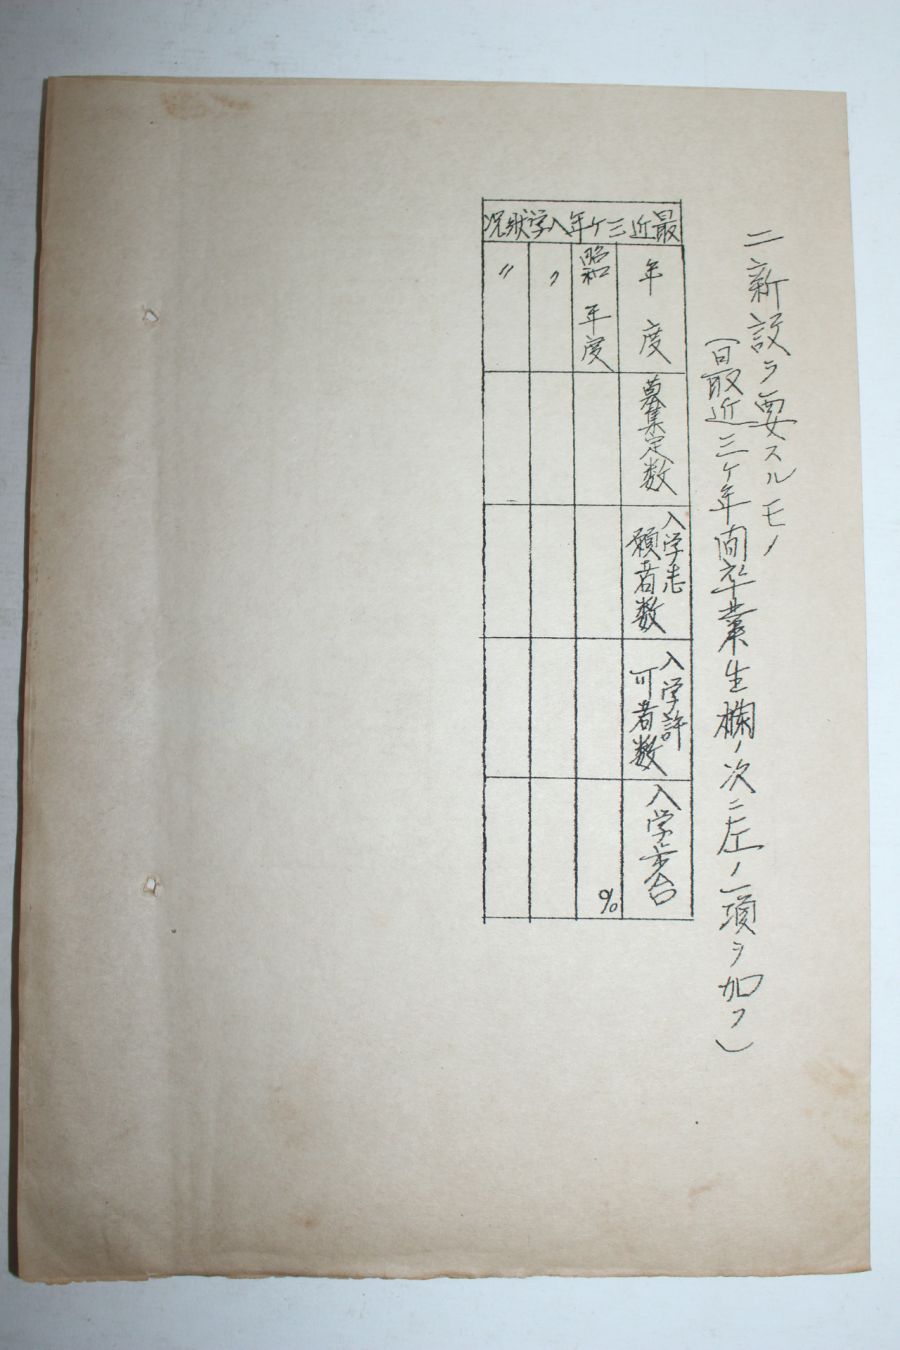 二新設ヲ要スルモノ
(最近三ケ年間卒業生欄ノ次ニ左ノ一項ヲ加フ)
最近三ケ年入学狀況
年度
募集定数
入学志
願者数
入学許
可者数
入学歩合
昭和 年度
%
〃
〃